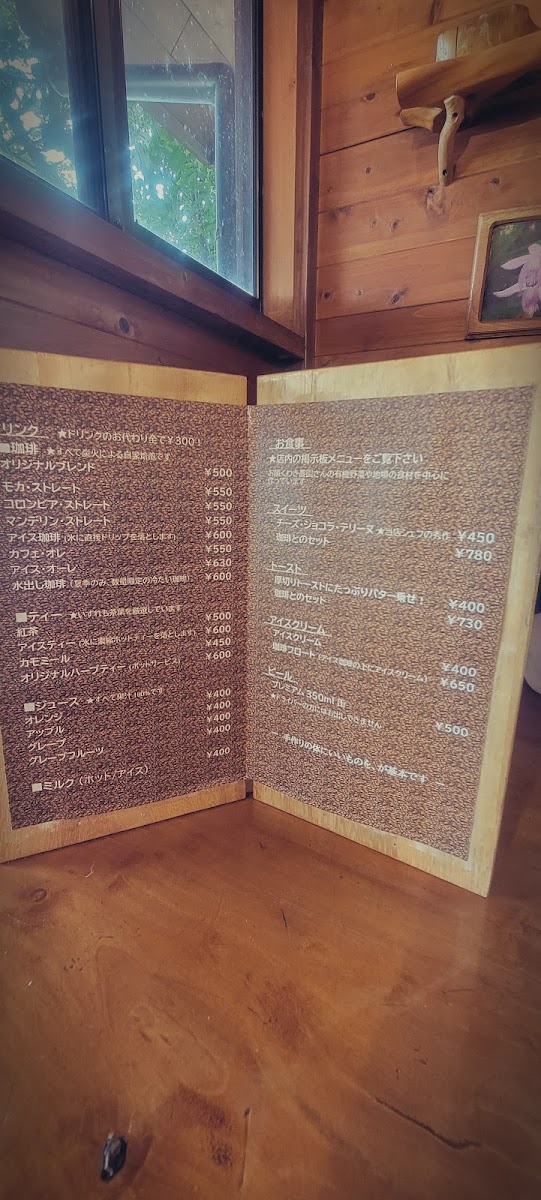 リンク ★ドリンクのお代わり全て￥300！
■珈琲 ★すべて炭火による自家焙煎です
オリジナルブレンド ￥500
モカ・ストレート ￥550
コロンビア・ストレート ￥550
マンデリン・ストレート ￥550
アイス珈琲（氷に直接ドリップを落とします） ￥600
カフェ・オレ ￥550
アイス・オーレ ￥630
水出し珈琲（夏季のみ、数量限定の冷たい珈琲） ￥600
■ティー ★いずれも茶葉を厳選しています
紅茶 ￥500
アイスティー（氷に濃縮ホットティーを落とします） ￥600
カモミール ￥450
オリジナルハーブティー（ポットサービス） ￥600
■ジュース ★すべて果汁100%です
オレンジ ￥400
アップル ￥400
グレープ ￥400
グレープフルーツ ￥400
■ミルク（ホット/アイス） ￥400
お食事
★店内の掲示板メニューをご覧下さい
農園さんの有機野菜や地場の食材を中心に
作っています
スイーツ
チーズ・ショコラ・テリーヌ ★当店シェフの名作 ￥450
珈琲とのセット ￥780
トースト
厚切りトーストにたっぷりバター乗せ！ ￥400
珈琲とのセット ￥730
アイスクリーム
アイスクリーム ￥400
珈琲フロート（アイス珈琲の上にアイスクリーム） ￥650
ビール
プレミアム 350ml 缶 ￥500
★ドライバーの方にはお出しできません
― 手作りの体にいいものを、が基本です ―